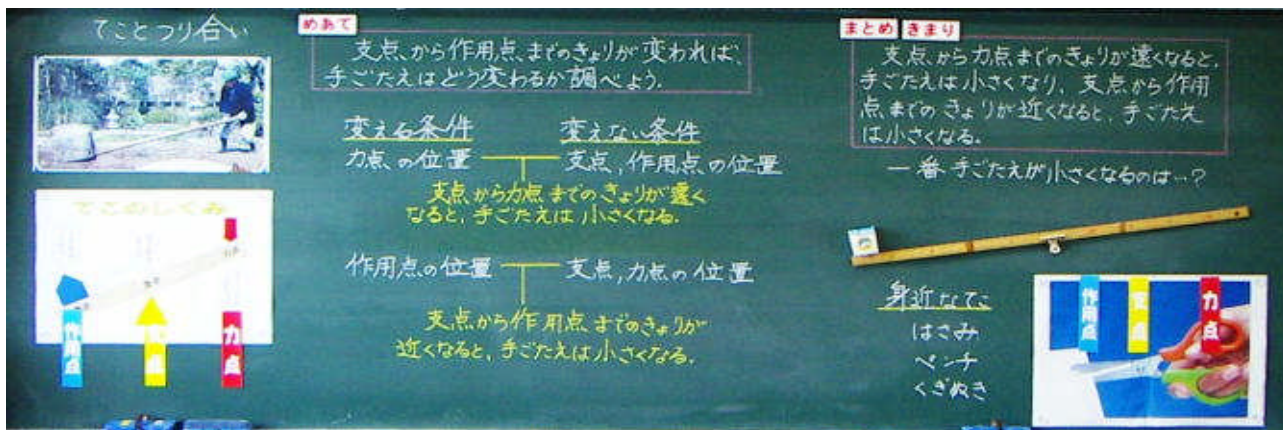 てことつり合い
てこのしくみ
作用点
支点
力点
めあて
支点から作用点までのきょりが変われば、
手ごたえはどう変わるか調べよう。
変える条件 変えない条件
力点の位置 支点,作用点の位置
支点から力点までのきょりが遠く
なると、手ごたえは小さくなる。
作用点の位置 支点,力点の位置
支点から作用点までのきょりが
近くなると、手ごたえは小さくなる。
まとめ きまり
支点から力点までのきょりが遠くなると、
手ごたえは小さくなり、支点から作用
点までのきょりが近くなると、手ごたえ
は小さくなる。
一番手ごたえが小さくなるのは…?
身近なてこ
はさみ
ペンチ
くぎぬき
作用点
支点
力点